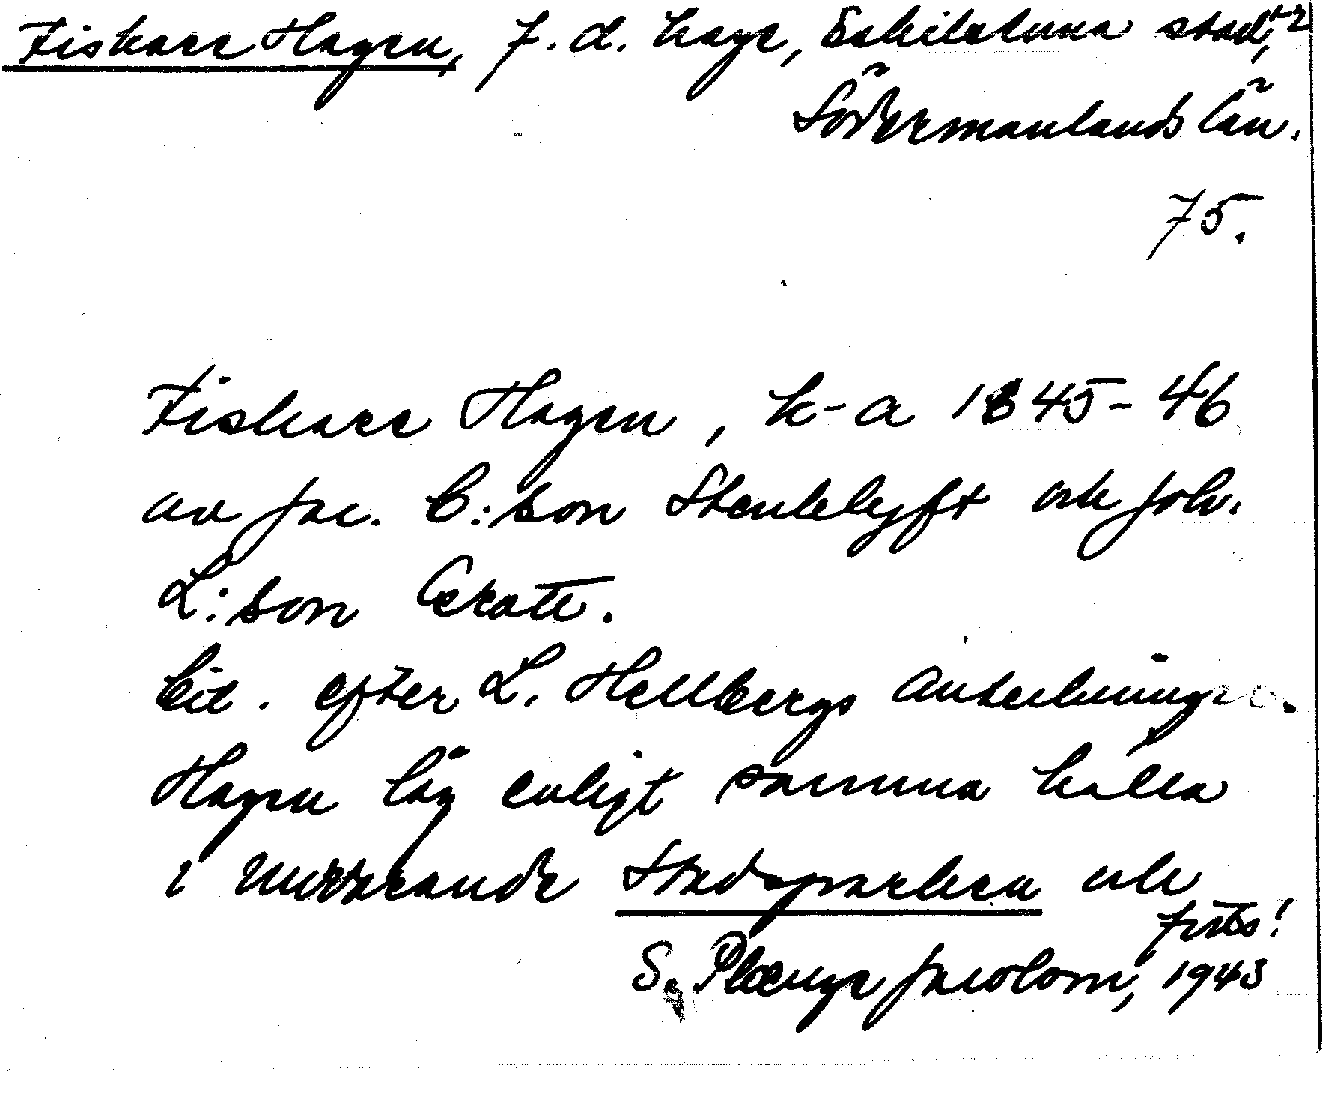 Fiskare Hagen, f. d. hage, Eskilstuna stad, +2
Södermanlands län.
75.
Fiskare Hagen, k-a 1845-46
av Jac. C:son Stenkelyft och Joh.
L:son Grate.
Cit. efter L. Hellbergs anteckningar.
Hagen låg enligt samma källa
i nuvarande Stadsparken och
forts!
S. Plænge Jacobson, 1943